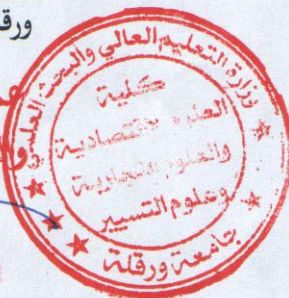 ورقلة
وزارة التعليم العالي والبحث العلمي
كلية
العلوم الاقتصادية
والعلوم التجارية
وعلوم التسيير
جامعة ورقلة